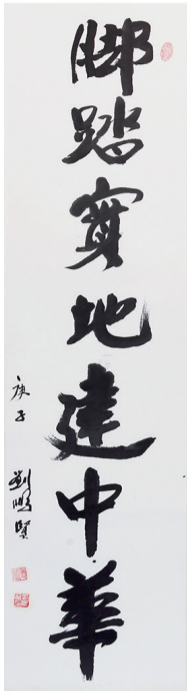 脚踏實地建中華
庚子 劉鵬賢